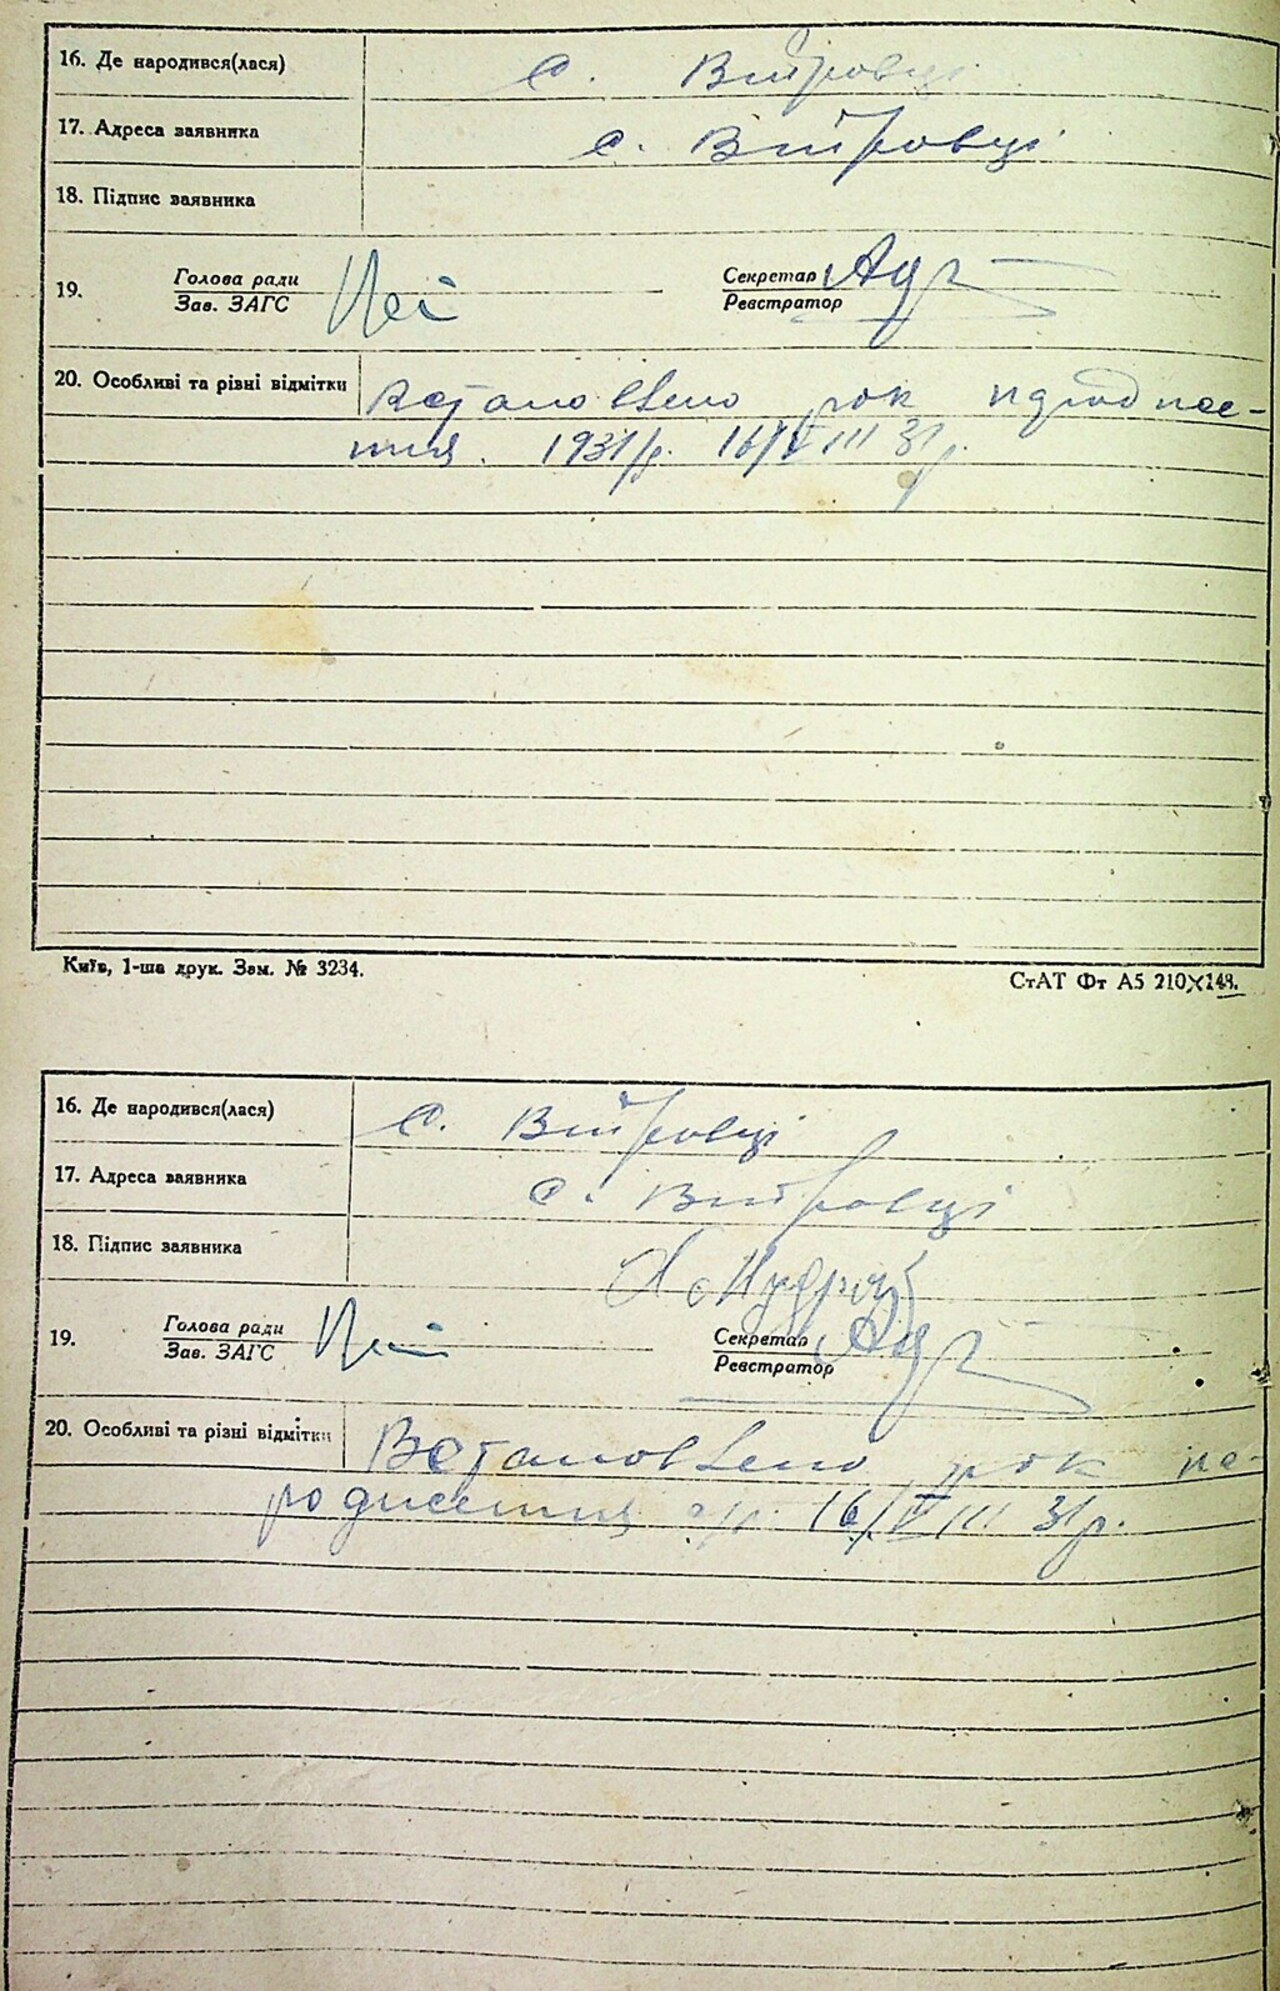 16. Де народився(лася) с. Витровці
17. Адреса заявника с. Витровці
18. Підпис заявника
19. Голова ради Секретар
Зав. ЗАГС Реєстратор
20. Особливі та різні відмітки Встановлено рок народжен-
ння. 1931 р. 16/VIII 31 р.
Київ, 1-ша друк. Зам. № 3234. СтАТ Фт А5 210×148.
16. Де народився(лася) с. Витровці
17. Адреса заявника с. Витровці
18. Підпис заявника
19. Голова ради Секретар
Зав. ЗАГС Реєстратор
20. Особливі та різні відмітки Встановлено рок на-
родження 16/VIII 31 р.